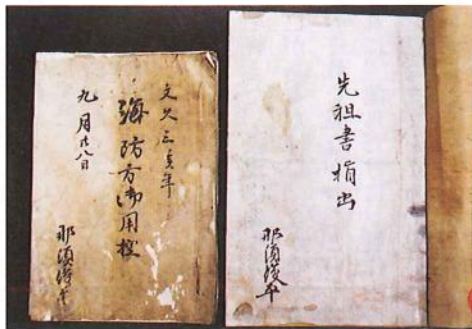 先祖書指出
那須俊平
文久三亥年
海防方御用控
九月廿八日
那須俊平